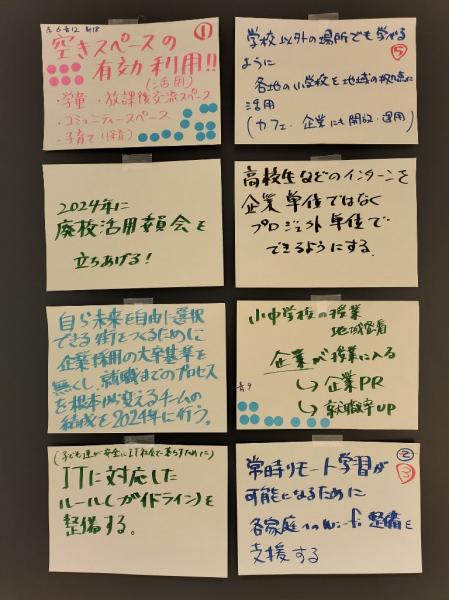 赤6 青12 計18
①
空きスペースの
有効利用!!
(活用)
・学童・放課後交流スペース
・コミュニティースペース
・子育て(保育)
⑤
学校以外の場所でも学べる
ように
各地の小学校を地域の拠点に
活用
(カフェ・企業にも開放・運用)
2024年に
廃校活用委員会を
立ちあげる!
高校生などのインターンを
企業単位ではなく
プロジェクト単位で
できるようにする.
自ら未来を自由に選択
できる街をつくるために
企業採用の大卒基準を
無くし、就職までのプロセス
を根本から変えるチームの
結成を2024年に行う。
小中学校の授業
地域密着
企業が授業に入る
↳企業PR
↳就職率UP
青9
(子ども達が安全にIT社会で暮らすために)
ITに対応した
ルール(ガイドライン)を
整備する。
②
③
常時リモート学習が
可能になるために
各家庭へのWi-Fi整備を
支援する